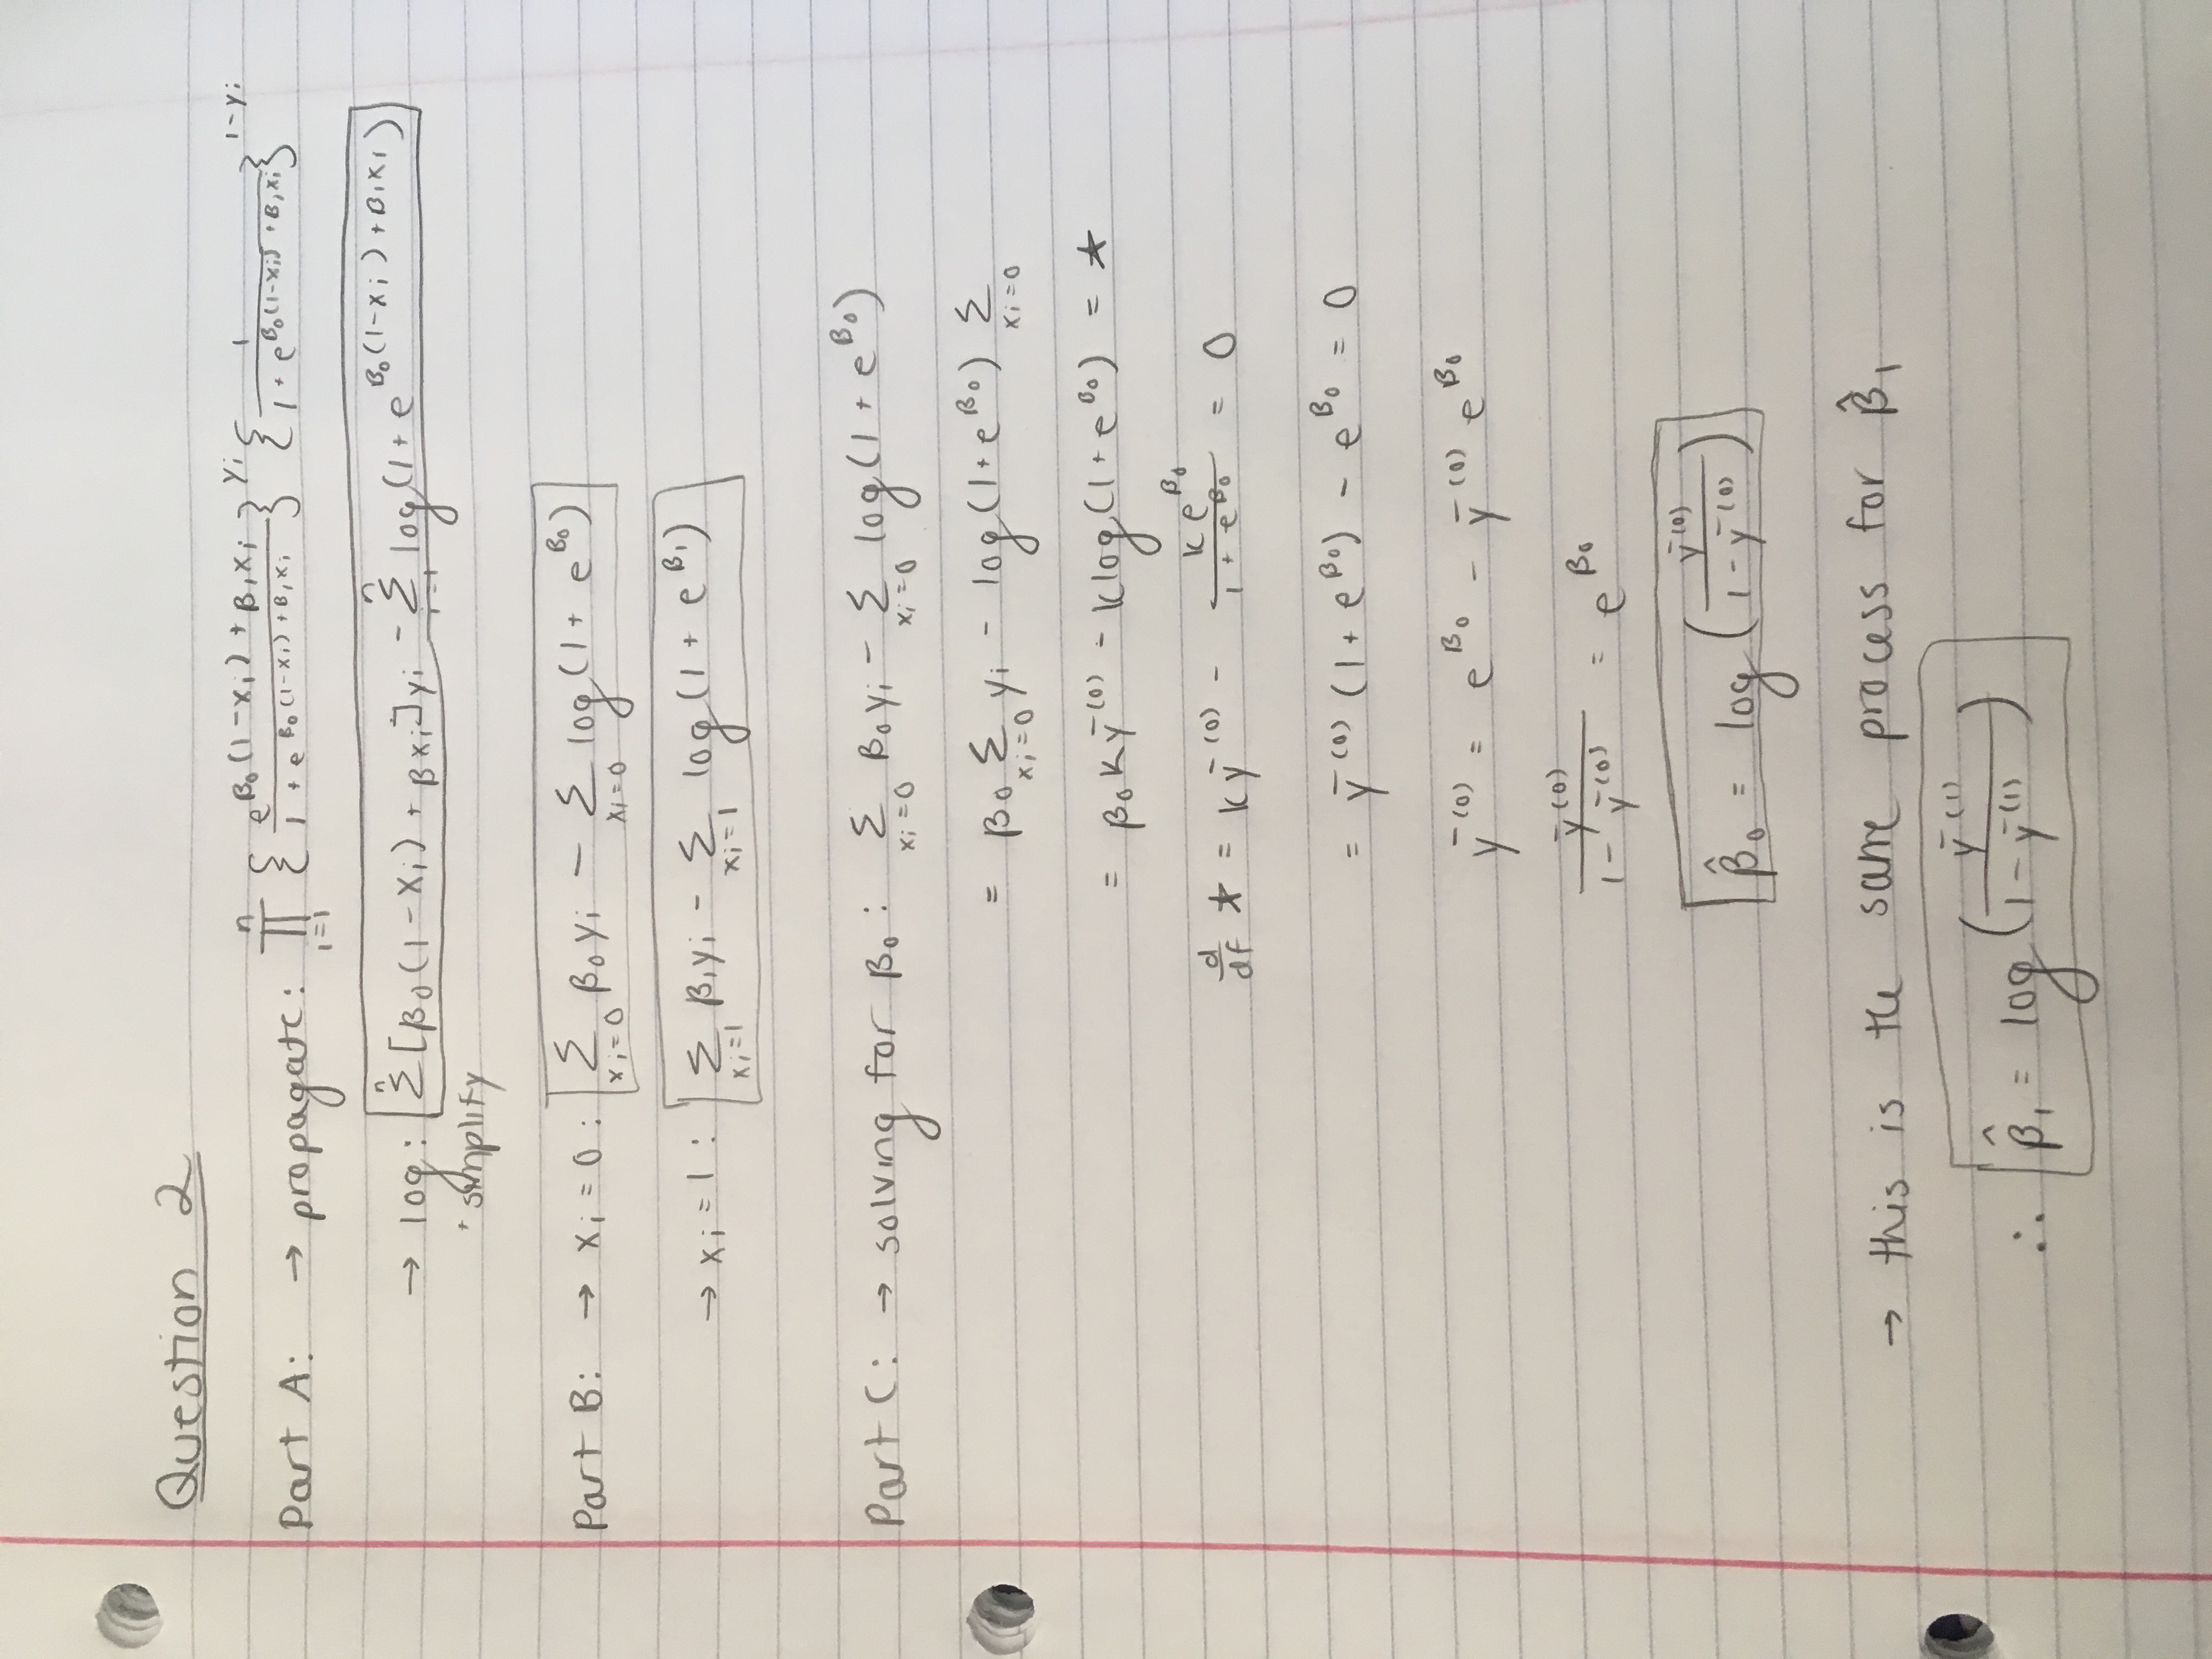 Question 2
Part A: → propagate: ∏_{i=1}^{n} { e^{β₀(1-xᵢ)+β₁xᵢ} / 1 + e^{β₀(1-xᵢ)+β₁xᵢ} }^{yᵢ} { 1 / 1 + e^{β₀(1-xᵢ)+β₁xᵢ} }^{1-yᵢ}
→ log: Σ^{n} [β₀(1-xᵢ) + βxᵢ]yᵢ - Σ_{i=1}^{n} log(1 + e^{β₀(1-xᵢ)+β₁xᵢ})
+ simplify
Part B: → xᵢ = 0: Σ_{xᵢ=0} β₀yᵢ - Σ_{xᵢ=0} log(1 + e^{β₀})
→ xᵢ = 1: Σ_{xᵢ=1} β₁yᵢ - Σ_{xᵢ=1} log(1 + e^{β₁})
Part C: → solving for β₀: Σ_{xᵢ=0} β₀yᵢ - Σ_{xᵢ=0} log(1 + e^{β₀})
= β₀ Σ_{xᵢ=0} yᵢ - log(1 + e^{β₀}) Σ_{xᵢ=0}
= β₀Kȳ^{(0)} - Klog(1 + e^{β₀}) = ★
d/df ★ = Kȳ^{(0)} - Ke^{β₀} / 1 + e^{β₀} = 0
= ȳ^{(0)} (1 + e^{β₀}) - e^{β₀} = 0
ȳ^{(0)} = e^{β₀} - ȳ^{(0)} e^{β₀}
ȳ^{(0)} / 1 - ȳ^{(0)} = e^{β₀}
β̂₀ = log( ȳ^{(0)} / 1 - ȳ^{(0)} )
→ this is the same process for β̂₁
∴ β̂₁ = log( ȳ^{(1)} / 1 - ȳ^{(1)} )